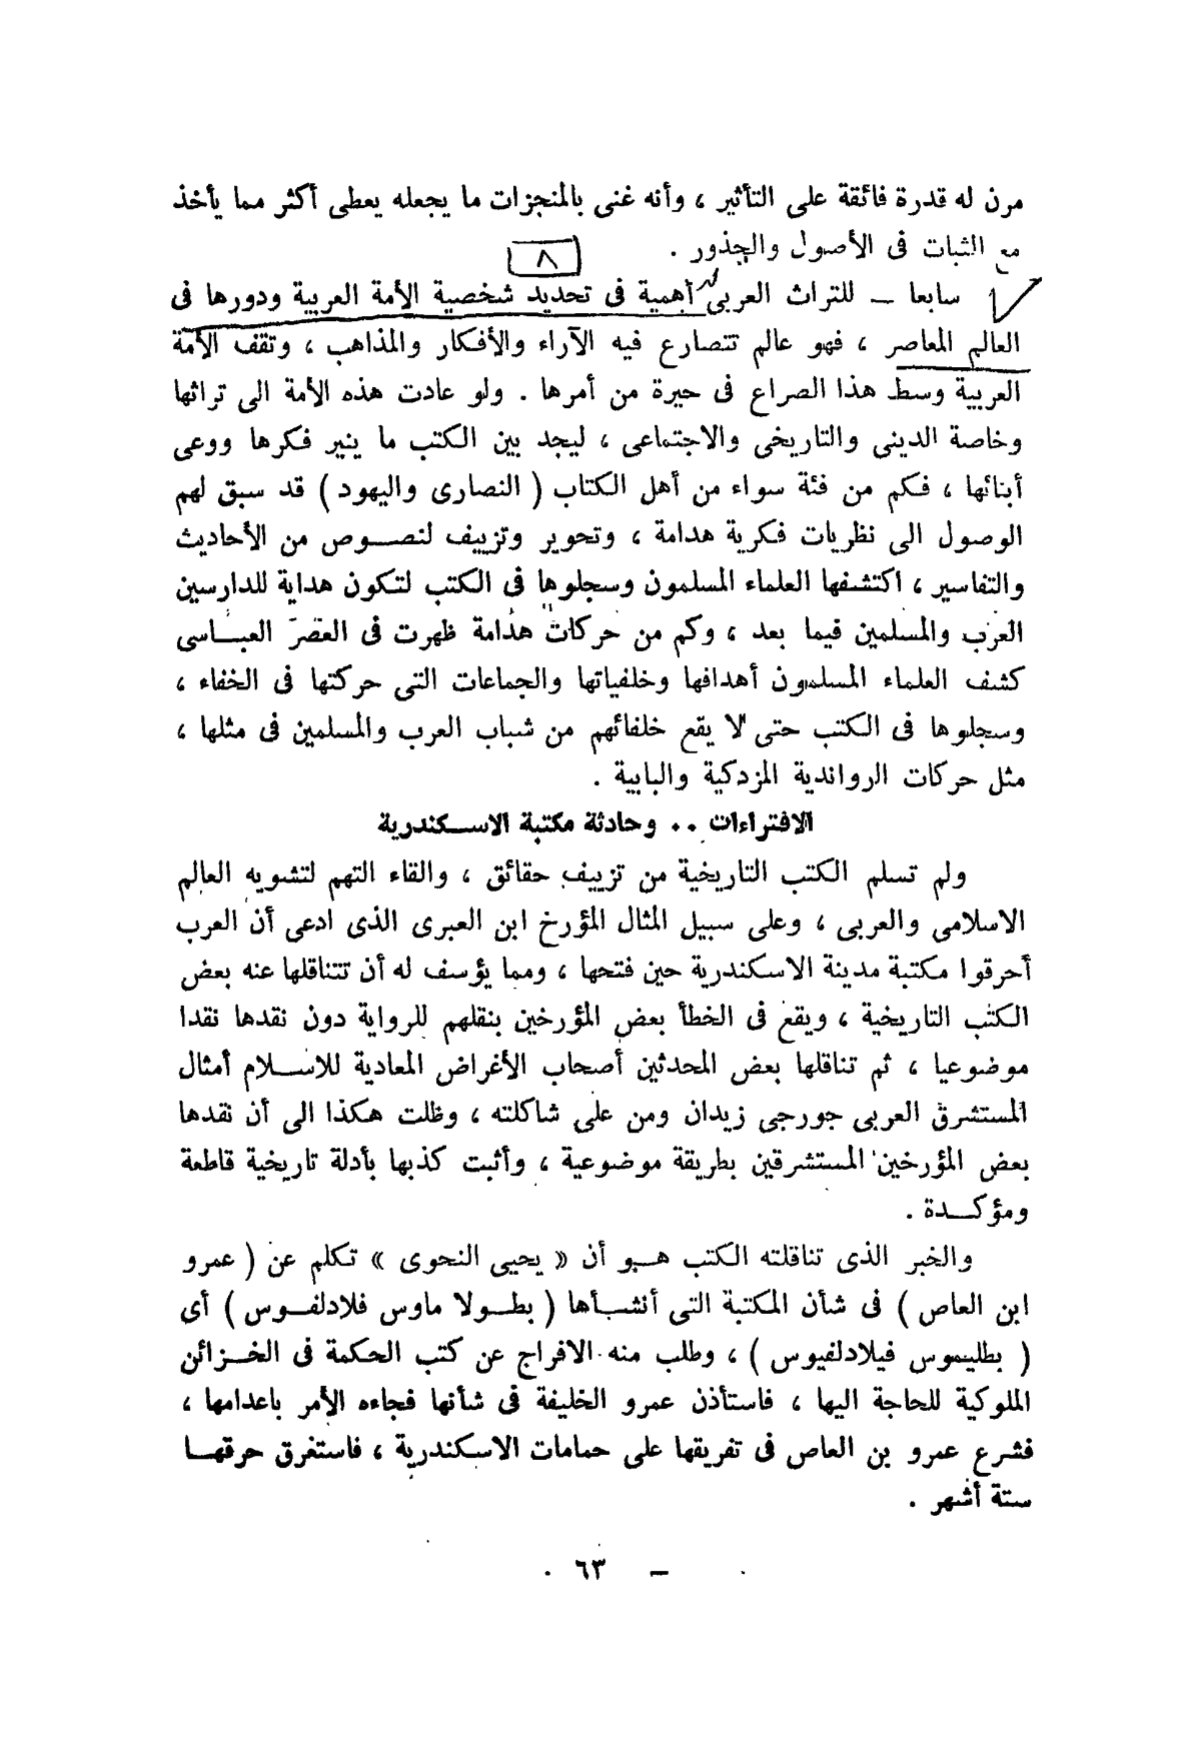 مرن له قدرة فائقة على التأثير ، وأنه غنى بالمنجزات ما يجعله يعطى أكثر مما يأخذ
مع الثبات فى الأصول والجذور .
٨
سابعا — للتراث العربى أهمية فى تحديد شخصية الأمة العربية ودورها فى
العالم المعاصر ، فهو عالم تتصارع فيه الآراء والأفكار والمذاهب ، وتقف الأمة
العربية وسط هذا الصراع فى حيرة من أمرها . ولو عادت هذه الأمة الى تراثها
وخاصة الدينى والتاريخى والاجتماعى ، ليجد بين الكتب ما ينير فكرها ووعى
أبنائها ، فكم من فئة سواء من أهل الكتاب ( النصارى واليهود ) قد سبق لهم
الوصول الى نظريات فكرية هدامة ، وتحوير وتزييف لنصوص من الأحاديث
والتفاسير ، اكتشفها العلماء المسلمون وسجلوها فى الكتب لتكون هداية للدارسين
العرب والمسلمين فيما بعد ، وكم من حركات هدامة ظهرت فى العصر العباسى
كشف العلماء المسلمون أهدافها وخلفياتها والجماعات التى حركتها فى الخفاء ،
وسجلوها فى الكتب حتى لا يقع خلفائهم من شباب العرب والمسلمين فى مثلها ،
مثل حركات الرواندية المزدكية والبابية .
الافتراءات .. وحادثة مكتبة الاسكندرية
ولم تسلم الكتب التاريخية من تزييف حقائق ، والقاء التهم لتشويه العالم
الاسلامى والعربى ، وعلى سبيل المثال المؤرخ ابن العبرى الذى ادعى أن العرب
أحرقوا مكتبة مدينة الاسكندرية حين فتحها ، ومما يؤسف له أن تتناقلها عنه بعض
الكتب التاريخية ، ويقع فى الخطأ بعض المؤرخين بنقلهم للرواية دون نقدها نقدا
موضوعيا ، ثم تناقلها بعض المحدثين أصحاب الأغراض المعادية للاسلام أمثال
المستشرق العربى جورجى زيدان ومن على شاكلته ، وظلت هكذا الى أن نقدها
بعض المؤرخين المستشرقين بطريقة موضوعية ، وأثبت كذبها بأدلة تاريخية قاطعة
ومؤكدة .
والخبر الذى تناقلته الكتب هو أن « يحيى النحوى » تكلم عن ( عمرو
ابن العاص ) فى شأن المكتبة التى أنشأها ( بطولا ماوس فلادلفوس ) أى
( بطليموس فيلادلفيوس ) ، وطلب منه الافراج عن كتب الحكمة فى الخزائن
الملوكية للحاجة اليها ، فاستأذن عمرو الخليفة فى شأنها فجاءه الأمر باعدامها ،
فشرع عمرو بن العاص فى تفريقها على حمامات الاسكندرية ، فاستغرق حرقها
ستة أشهر .
— ٦٣